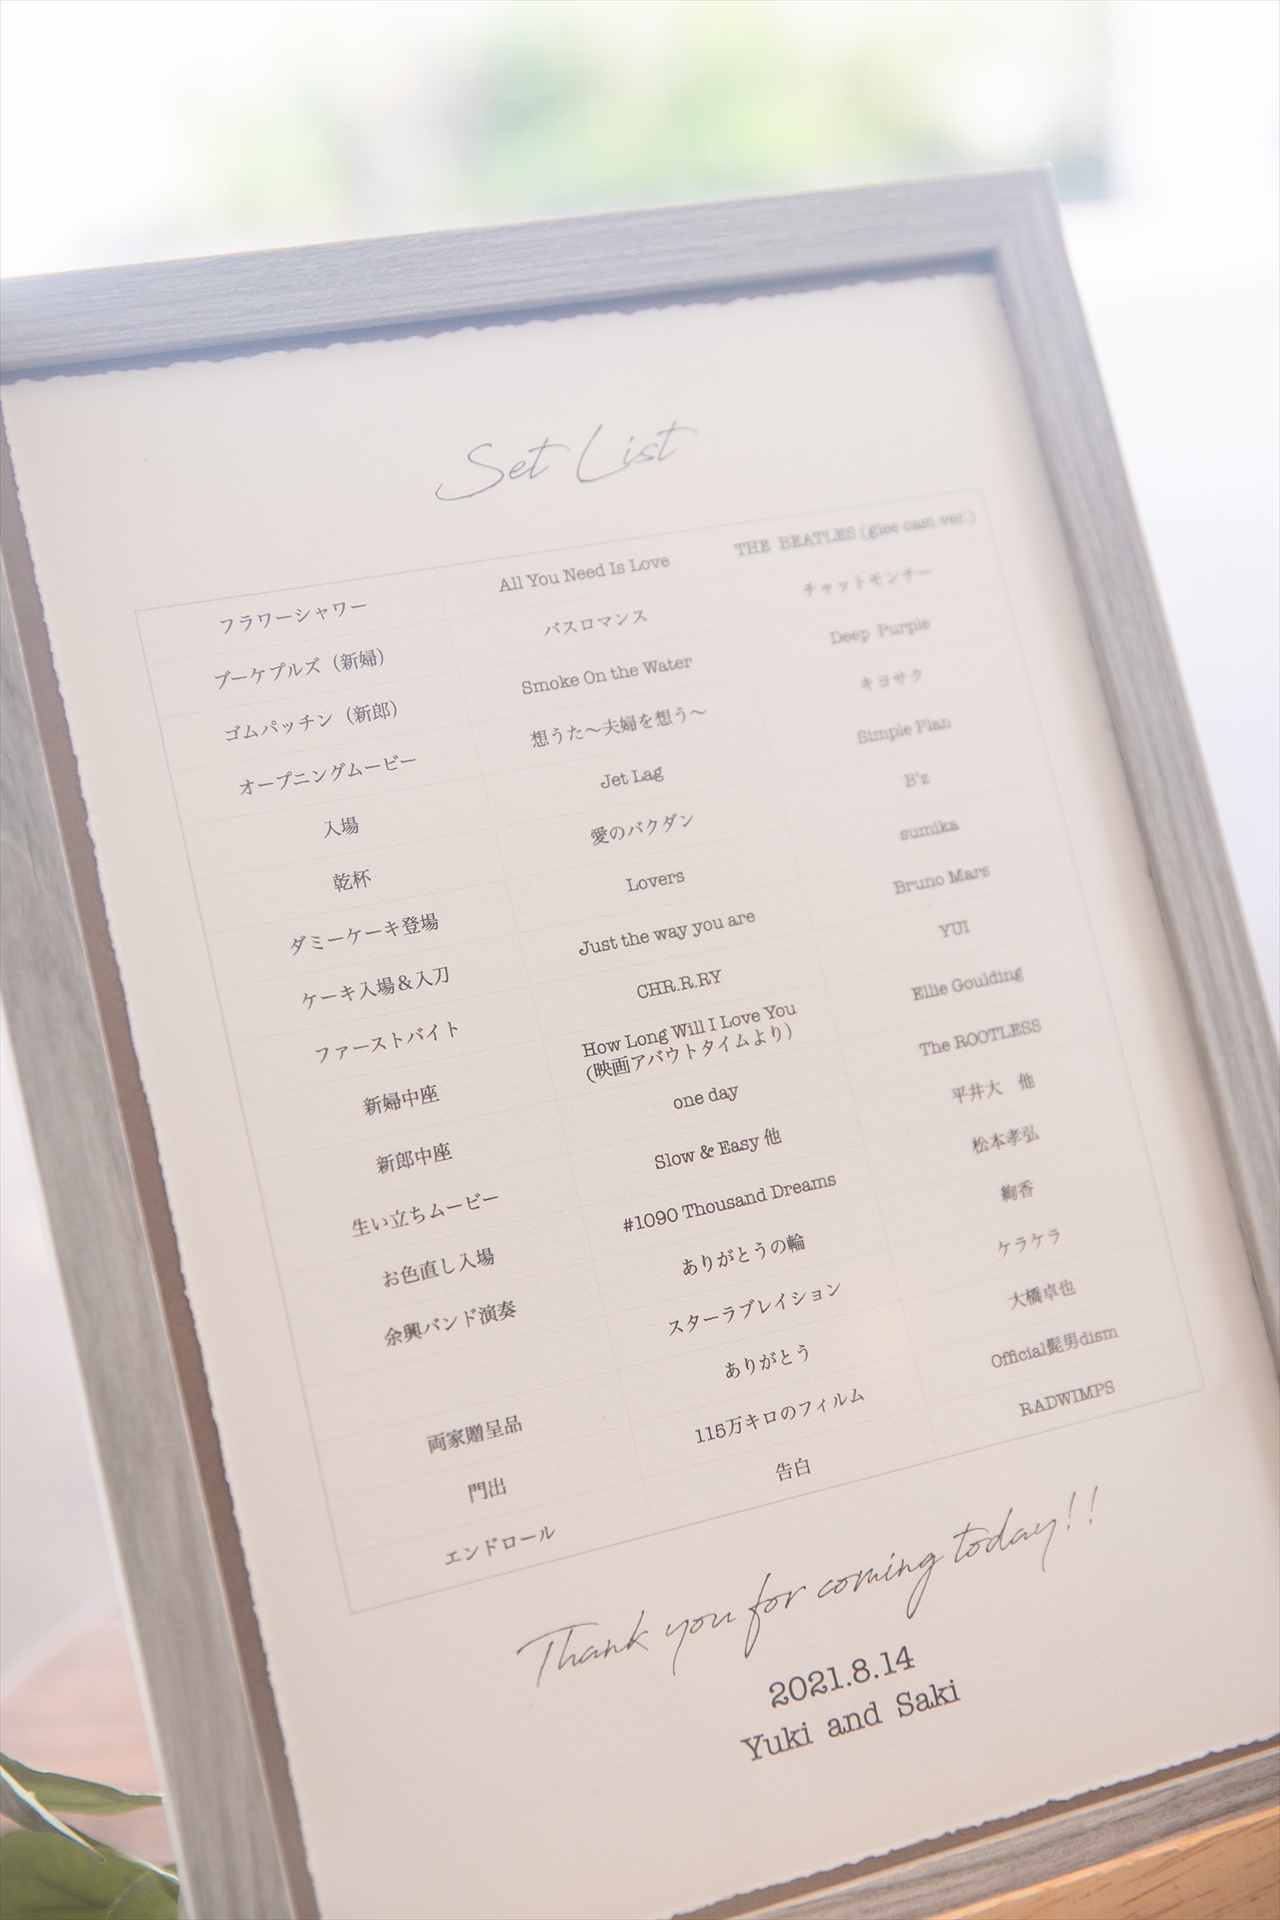 Set List
フラワーシャワー All You Need Is Love THE BEATLES (glee cast ver.)
ブーケプルズ（新婦） バスロマンス チャットモンチー
ゴムパッチン（新郎） Smoke On the Water Deep Purple
オープニングムービー 想うた〜夫婦を想う〜 キヨサク
入場 Jet Lag Simple Plan
乾杯 愛のバクダン B'z
ダミーケーキ登場 Lovers sumika
ケーキ入場＆入刀 Just the way you are Bruno Mars
ファーストバイト CHR.R.RY YUI
新婦中座 How Long Will I Love You Ellie Goulding
(映画アバウトタイムより)
新郎中座 one day The ROOTLESS
生い立ちムービー Slow & Easy 他 平井大　他
お色直し入場 #1090 Thousand Dreams 松本孝弘
余興バンド演奏 ありがとうの輪 絢香
スターラブレイション ケラケラ
両家贈呈品 ありがとう 大橋卓也
門出 115万キロのフィルム Official髭男dism
エンドロール 告白 RADWIMPS
Thank you for coming today!!
2021.8.14
Yuki and Saki